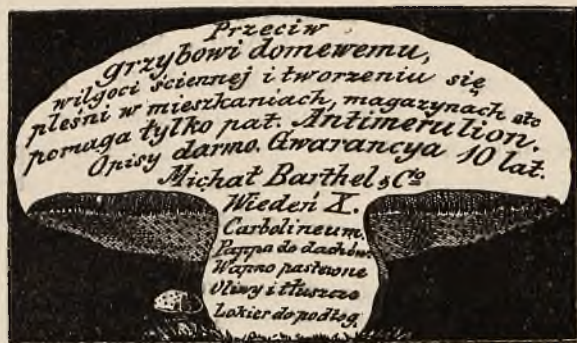 Przeciw
grzybowi domowemu,
wilgoci ściennej i tworzeniu się
pleśni w mieszkaniach, magazynach etc
pomaga tylko pat. Antimerulion.
Opisy darmo. Gwarancya 10 lat.
Michał Barthel & Cio
Wiedeń X.
Carbolineum.
Pappa do dachów.
Wapno pastewne
Oliwy i tłuszcze
Lakier do podłog.